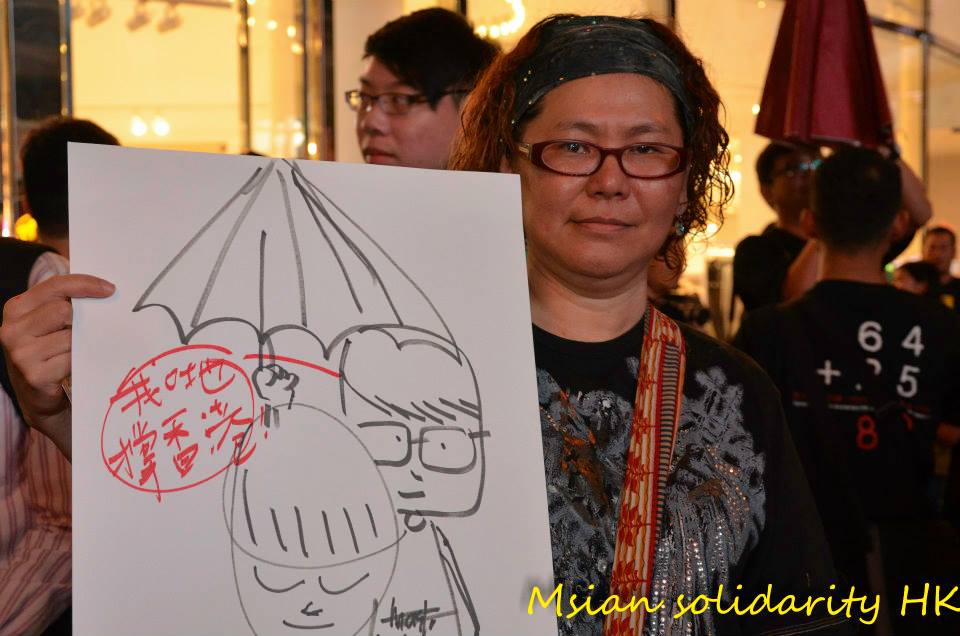 我哋
撐香港!
64
+ 25
8
Msian solidarity HK